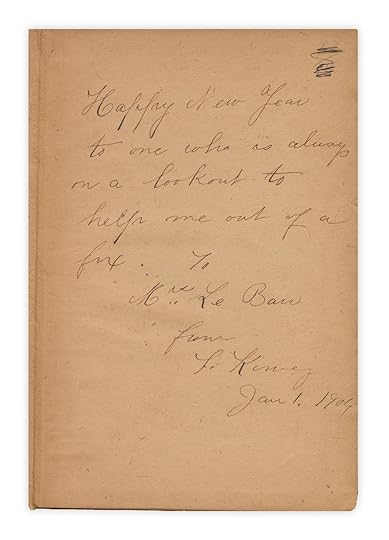 Happy New Year
to one who is always
on a lookout to
help me out of a
fix. To
Mrs. Le Barr
from
Jan 1. 1904